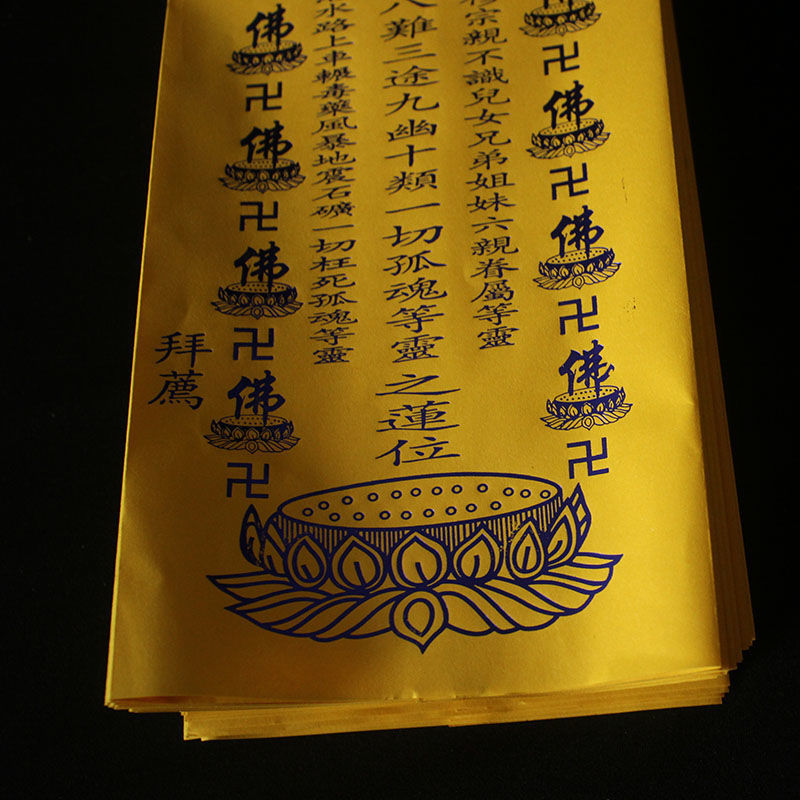 卍佛卍佛卍佛卍
宗親不識兒女兄弟姐妹六親眷屬等靈
八難三途九幽十類一切孤魂等靈之蓮位
水路上車輾毒藥風暴地震石礦一切枉死孤魂等靈
佛卍佛卍佛卍佛卍
拜薦